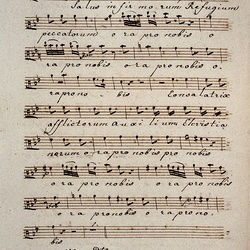 Salus in fir mo rum Refugium
peccatorum o ra pro nobis o
ra pro nobis o ra pro nobis o.
ra pro no - bis Consolatrix
afflictorum Aux i lium Christia
norum o ra pro nobis o ra pro nobis
o ra pro nobis o ra pro nobis
o ra pro nobis o ra pro no.
bis